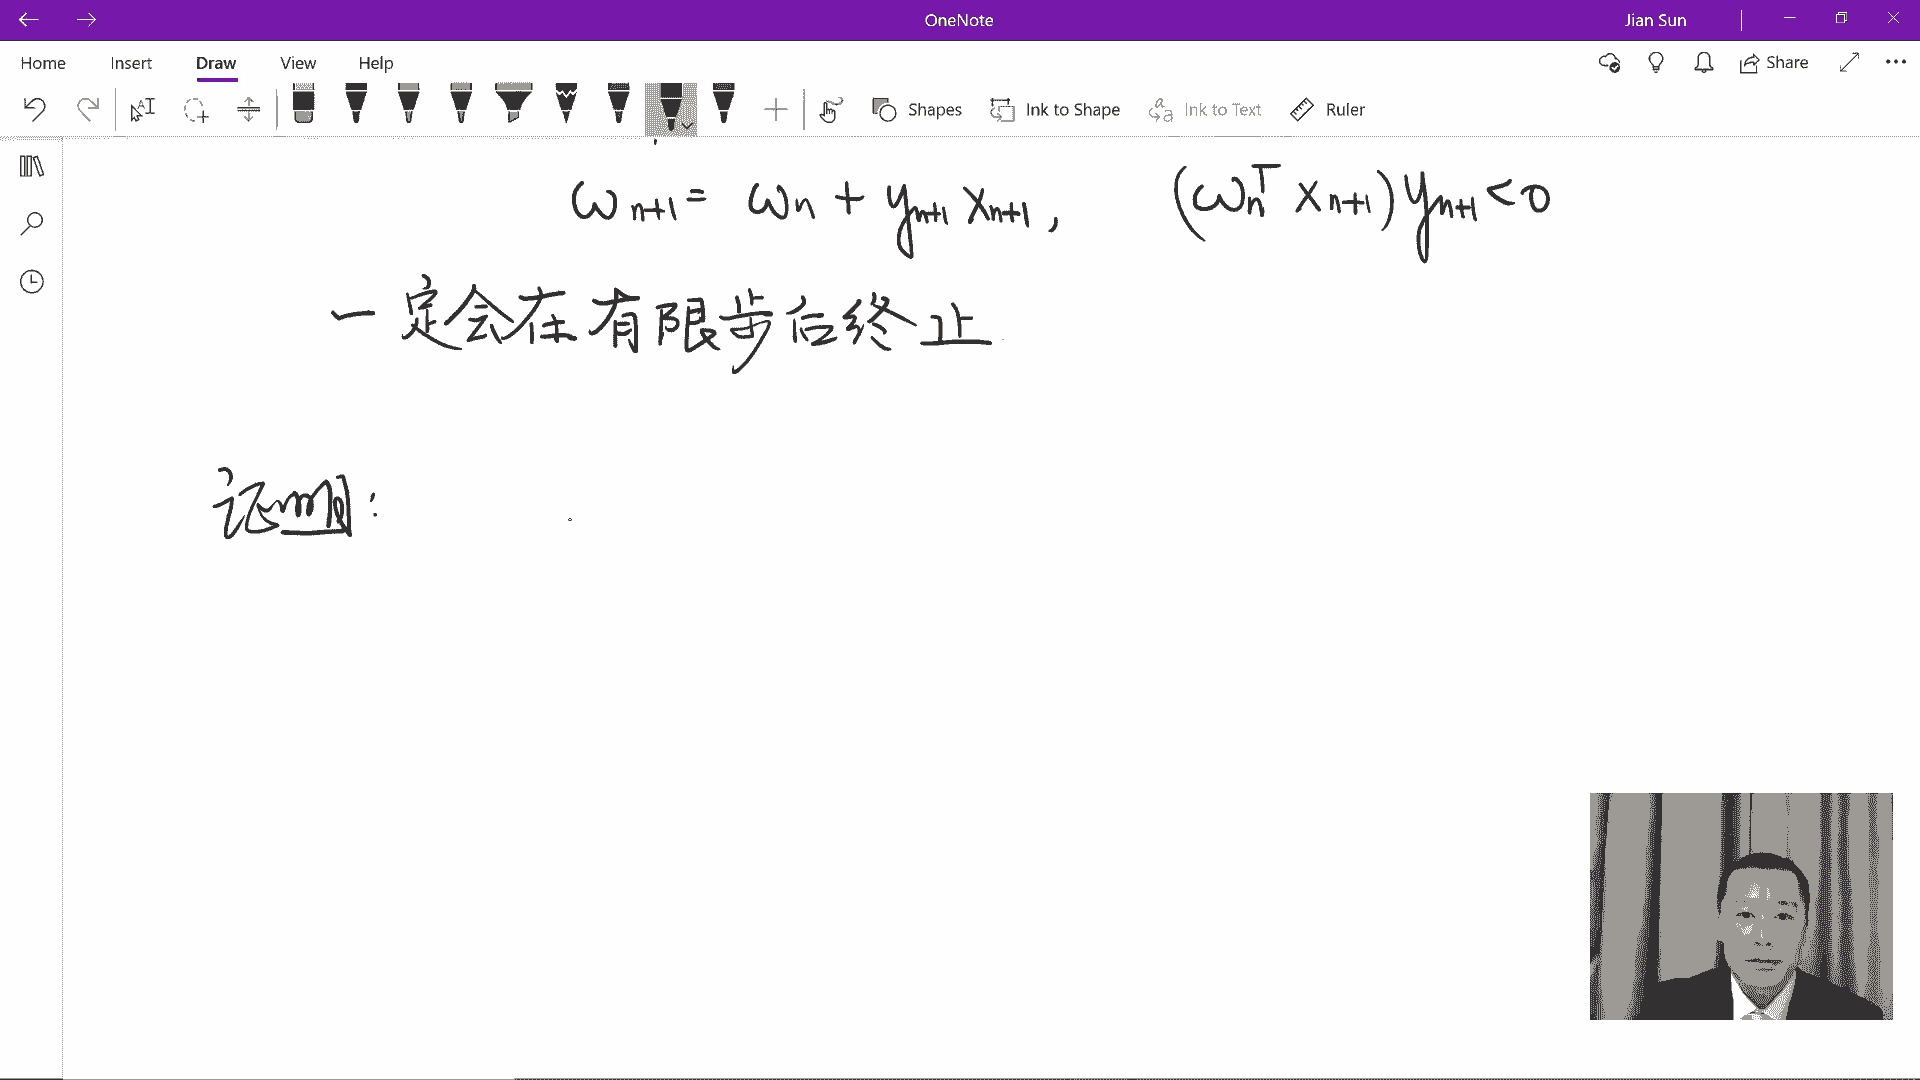 OneNote
Jian Sun
Home Insert Draw View Help
Share
Shapes Ink to Shape Ink to Text Ruler
ω_{n+1} = ω_n + y_{n+1} x_{n+1}, (ω_n^T x_{n+1}) y_{n+1} < 0
一定会在有限步后终止
证明: